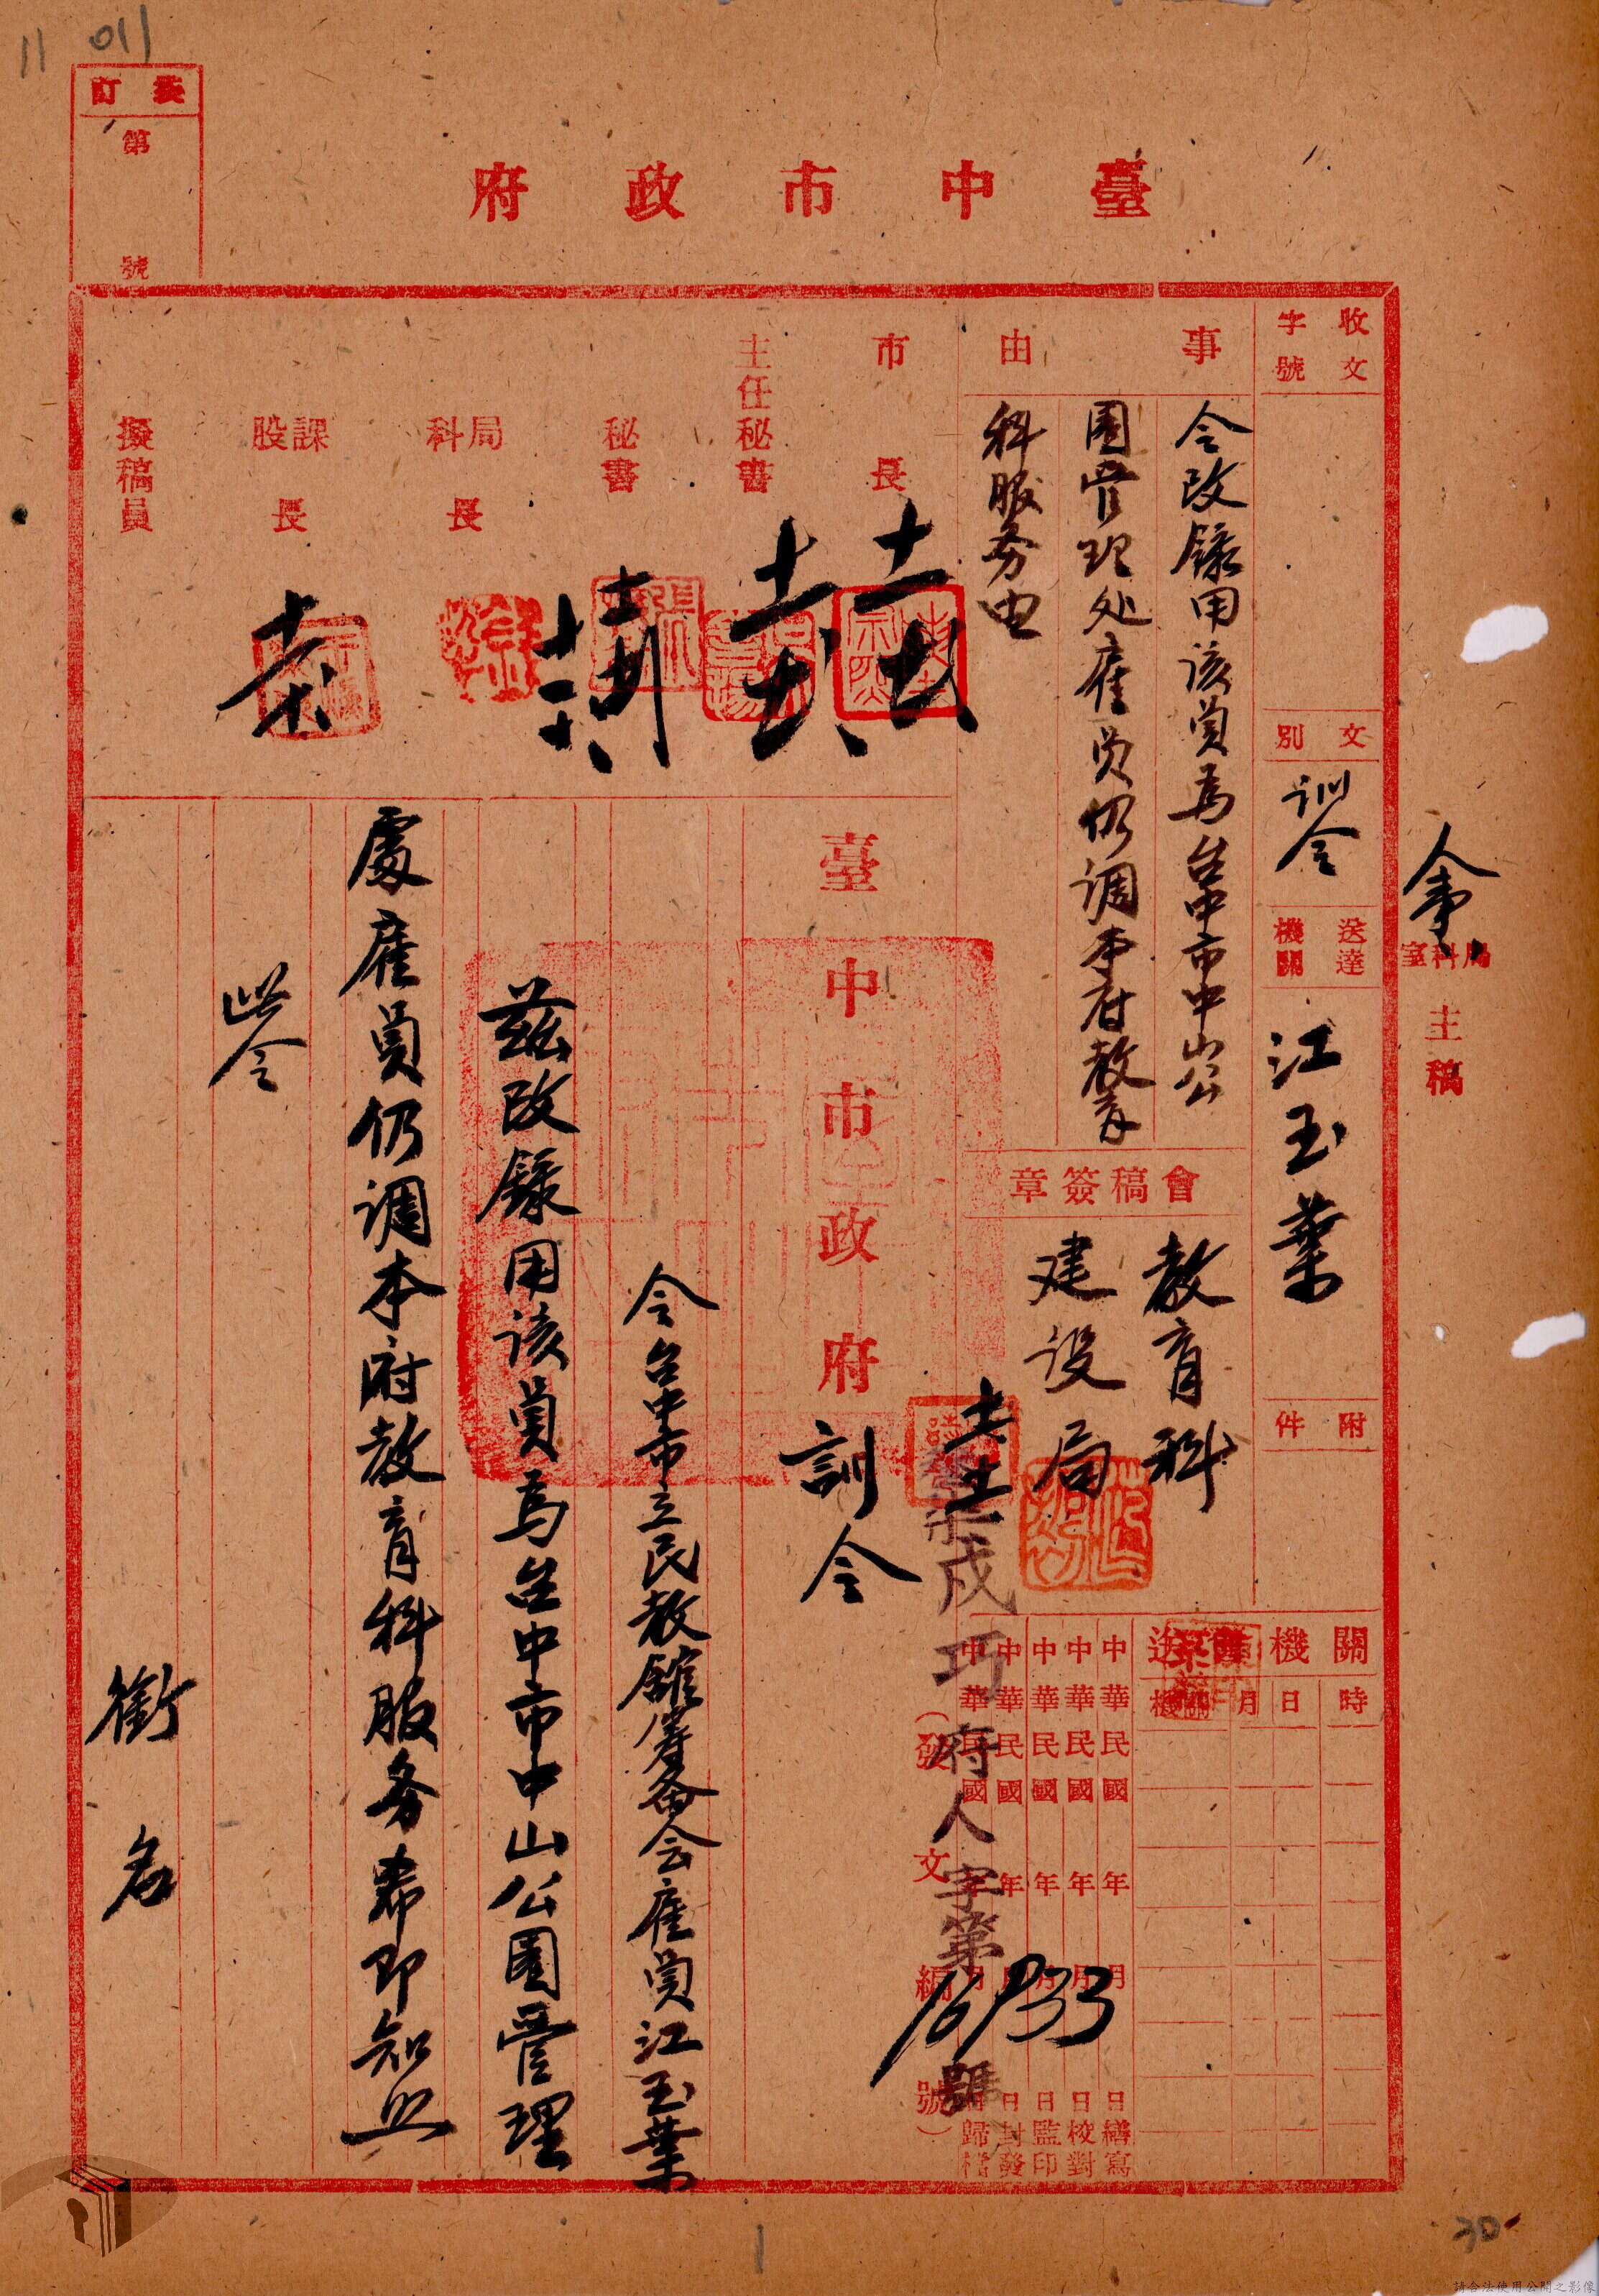 11 011
裝訂
第
號
臺中市政府
人事
局科室
主稿
收文
字號
文別
訓令
送達
機關
江玉葉
附件
事由
令改錄用該員為台中市中山公
園管理处雇員仍调本府教育
科服务由
會稿簽章
教育科
建设局
市長
主任秘書
秘書
局科長
課股長
擬稿員
關機
時
日
月
機關
中華民國 年 月 日繕寫
中華民國 年 月 日校對
中華民國 年 月 日監印
中華民國 年 月 日封發
中華民國 年 月 日歸檔
戍巧府人字第16933號
(發文編號)
臺中市政府訓令
令台中市立民教館籌备会雇員江玉葉
茲改錄用該員為台中市中山公園管理
處雇員仍调本府教育科服务希即知照
此令
銜名
30
請合法使用公開之影像